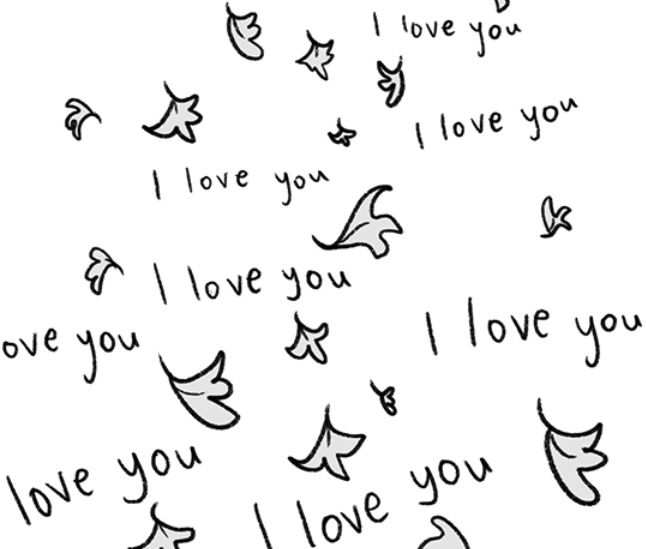 I love you
I love you
I love you
I love you
I love you
ove you
love you
I love you